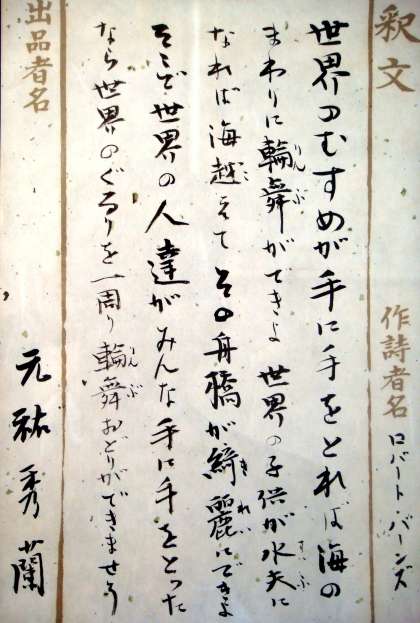 釈文
作詩者名 ロバート・バーンズ
世界のむすめが手に手をとれば海の
りんぶ
まわりに輪舞ができよ 世界の子供が水夫に
こ きれい
なれば海越えてその舟橋が綺麗にできよ
そこで世界の人達がみんな手に手をとった
りんぶ
なら世界のぐるりを一周り輪舞おどりができませう
出品者名
元祐秀蘭